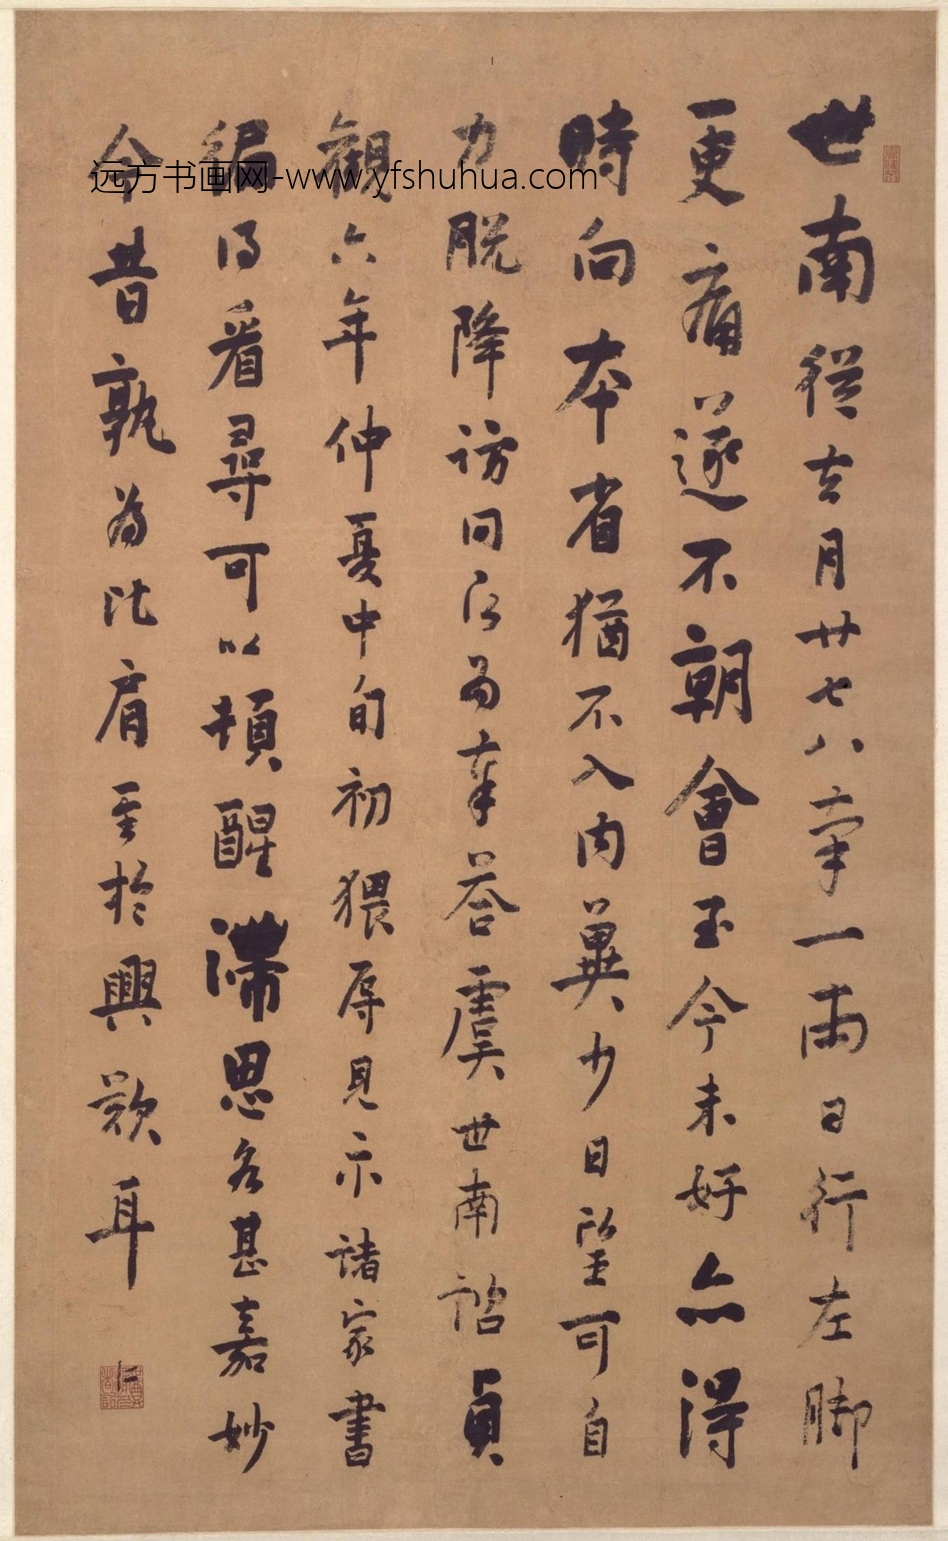 世南從去月廿七八率一兩日行左脚
更痛遂不朝會至今未好亦得
時向本省猶不入內冀少日望可自
力脫降訪問所為幸荅虞世南詔貞
觀六年仲夏中旬初猥辱見示諸家書
編得看尋可以頓醒滯思名甚嘉妙
今昔孰為比肩至於興歎耳
仁
远方书画网-www.yfshuhua.com